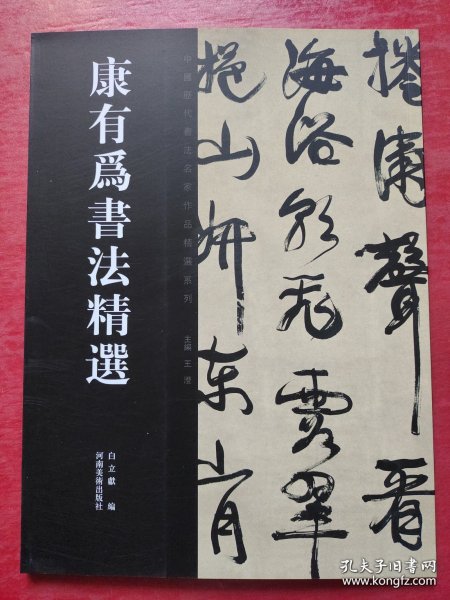 康有爲書法精選
中國歷代書法名家作品精選系列　主編 王澄
白立獻 編
河南美術出版社
聲看
海浴
挹山
孔夫子旧书网
www.kongfz.com